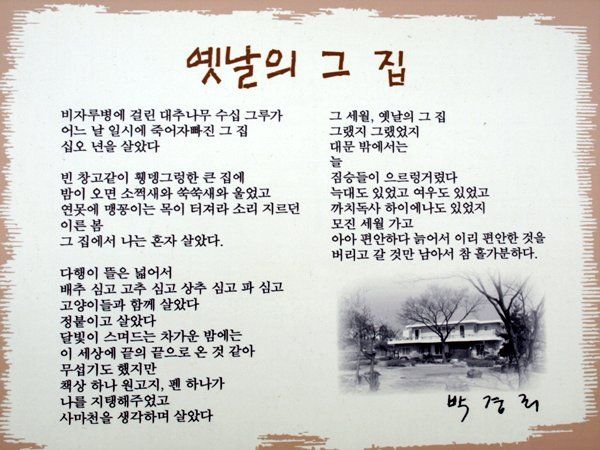 옛날의 그 집
비자루병에 걸린 대추나무 수십 그루가
어느 날 일시에 죽어자빠진 그 집
십오 년을 살았다
빈 창고같이 휑뎅그렁한 큰 집에
밤이 오면 소쩍새와 쑥쑥새와 울었고
연못에 맹꽁이는 목이 터져라 소리 지르던
이른 봄
그 집에서 나는 혼자 살았다.
다행이 뜰은 넓어서
배추 심고 고추 심고 상추 심고 파 심고
고양이들과 함께 살았다
정붙이고 살았다
달빛이 스며드는 차가운 밤에는
이 세상에 끝의 끝으로 온 것 같아
무섭기도 했지만
책상 하나 원고지, 펜 하나가
나를 지탱해주었고
사마천을 생각하며 살았다
그 세월, 옛날의 그 집
그랬지 그랬었지
대문 밖에서는
늘
짐승들이 으르렁거렸다
늑대도 있었고 여우도 있었고
까치독사 하이에나도 있었지
모진 세월 가고
아아 편안하다 늙어서 이리 편안한 것을
버리고 갈 것만 남아서 참 홀가분하다.
박경리